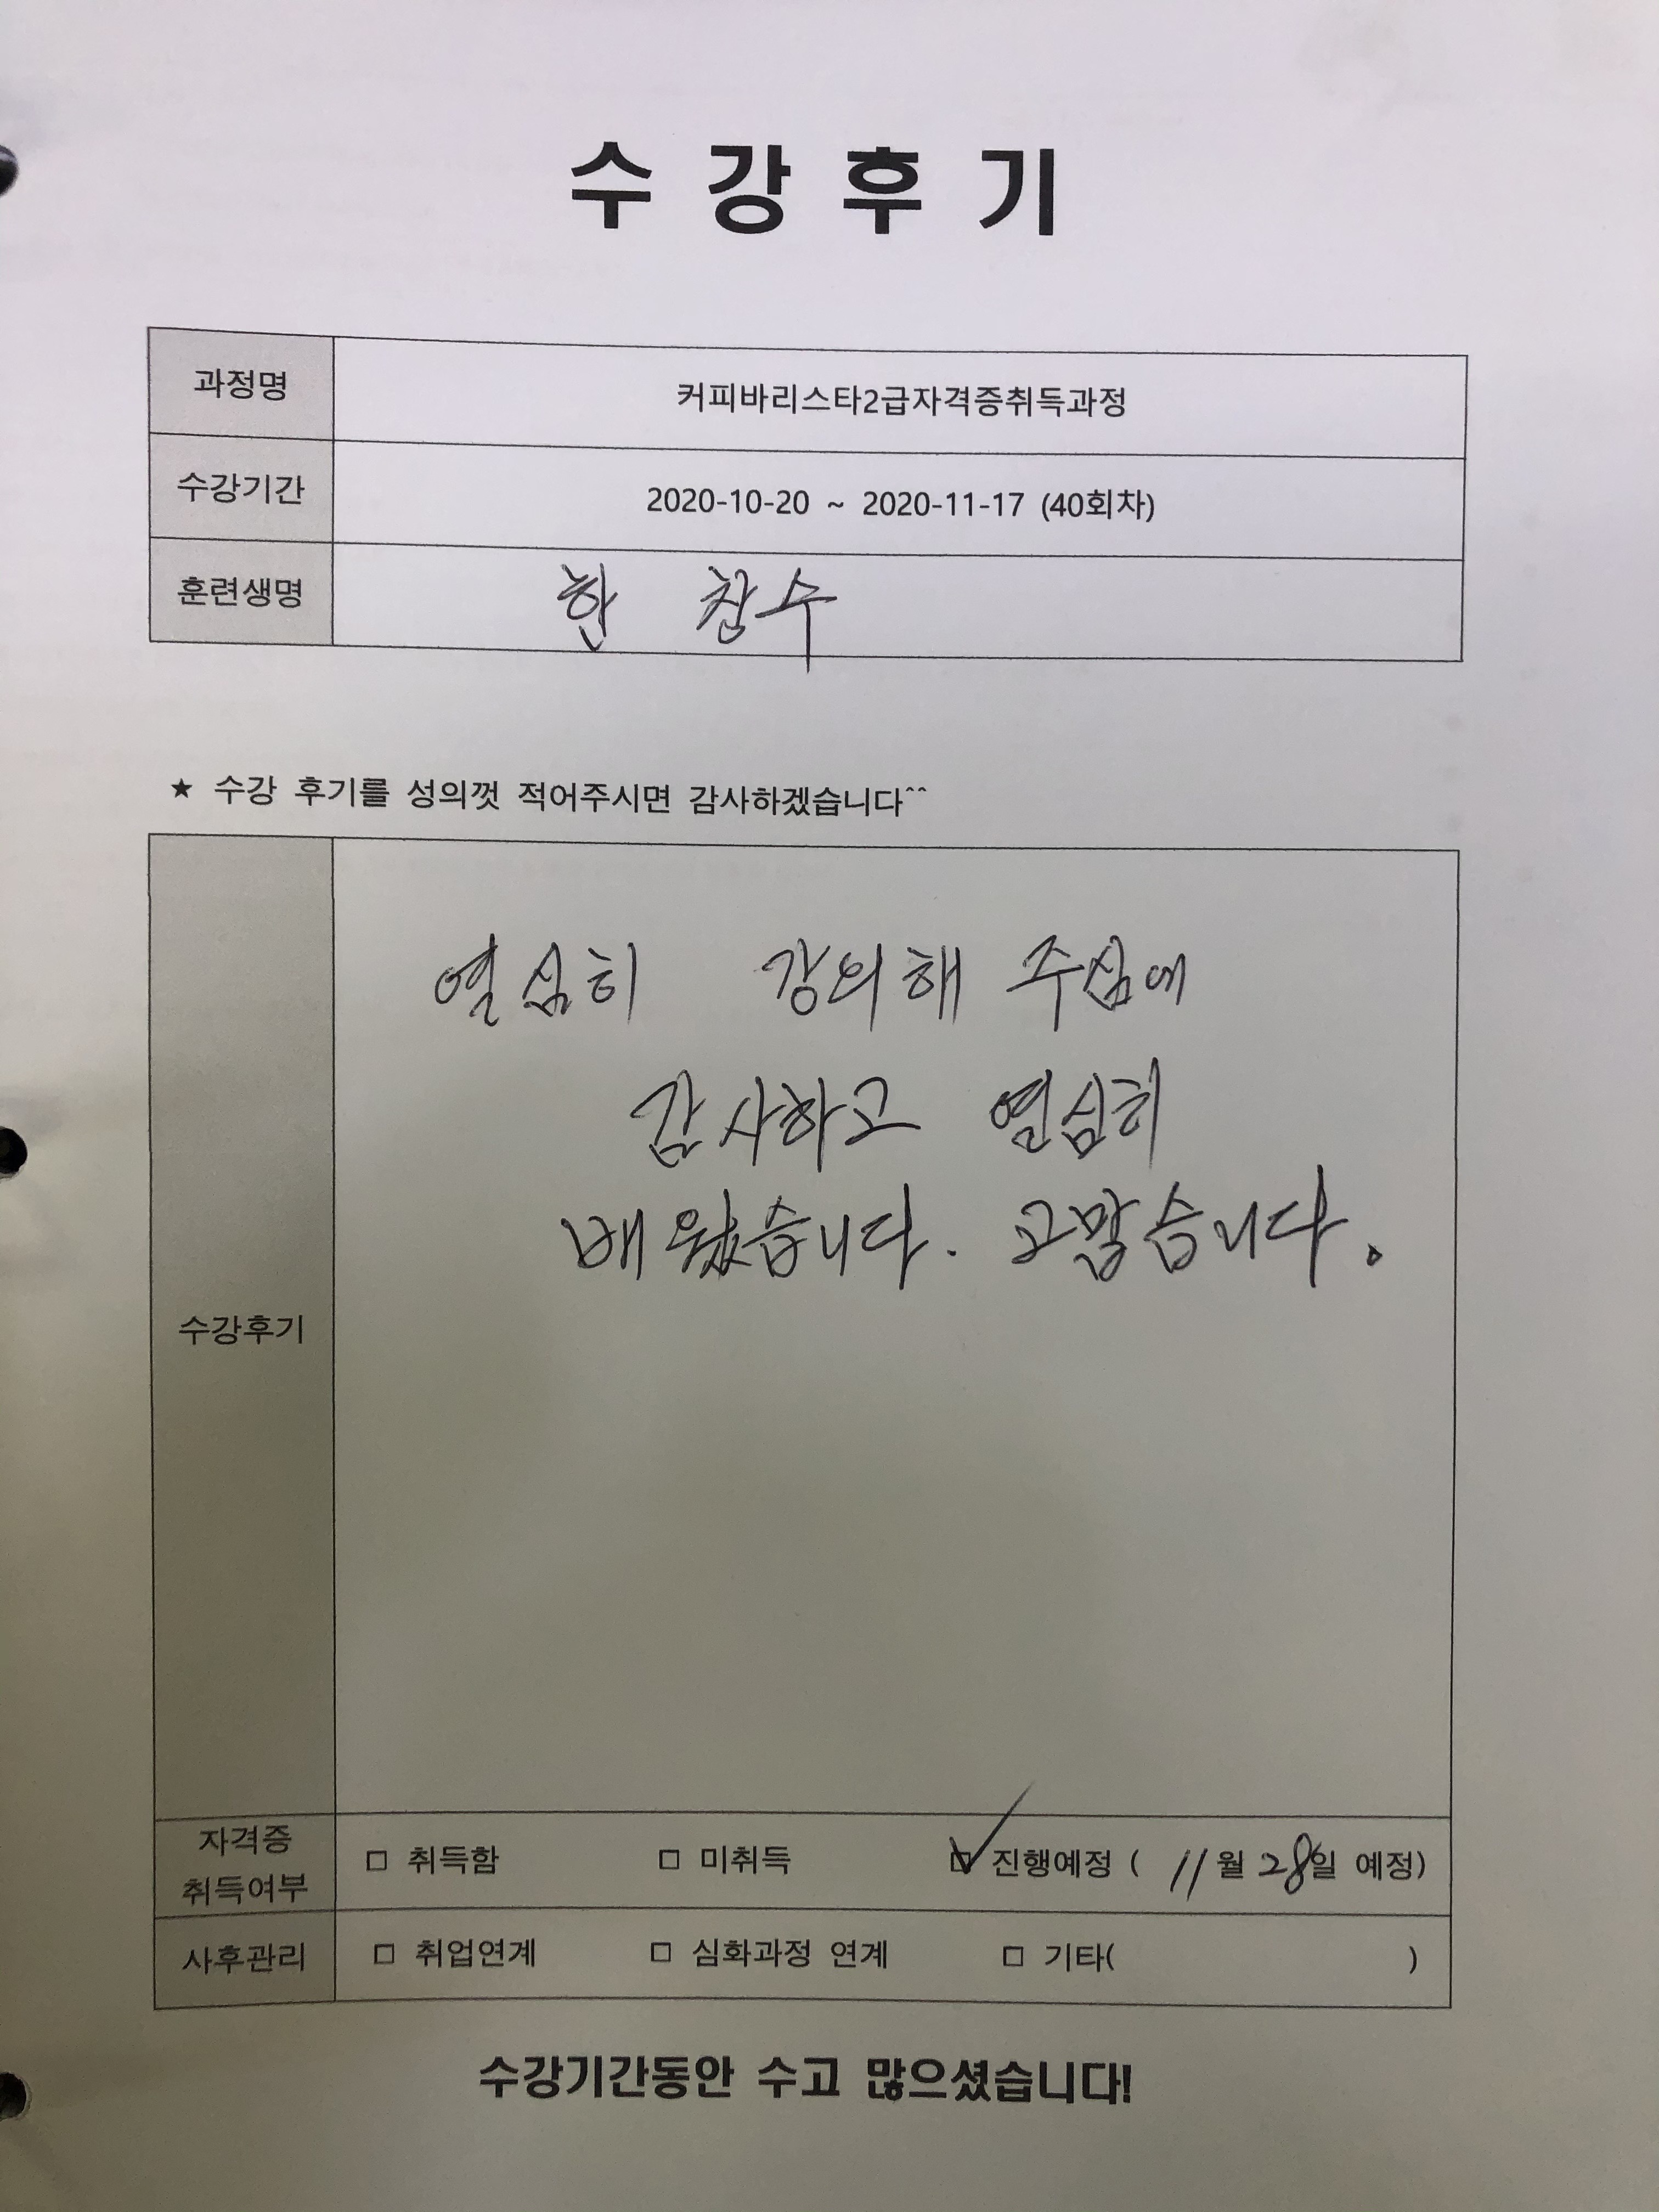 수강후기
과정명 커피바리스타2급자격증취득과정
수강기간 2020-10-20 ~ 2020-11-17 (40회차)
훈련생명 한 창수
★ 수강 후기를 성의껏 적어주시면 감사하겠습니다^^
열심히 강의해 주심에
감사하고 열심히
배웠습니다. 고맙습니다.
수강후기
자격증
취득여부
□ 취득함 □ 미취득 ☑ 진행예정 ( 11월 28일 예정)
사후관리 □ 취업연계 □ 심화과정 연계 □ 기타( )
수강기간동안 수고 많으셨습니다!